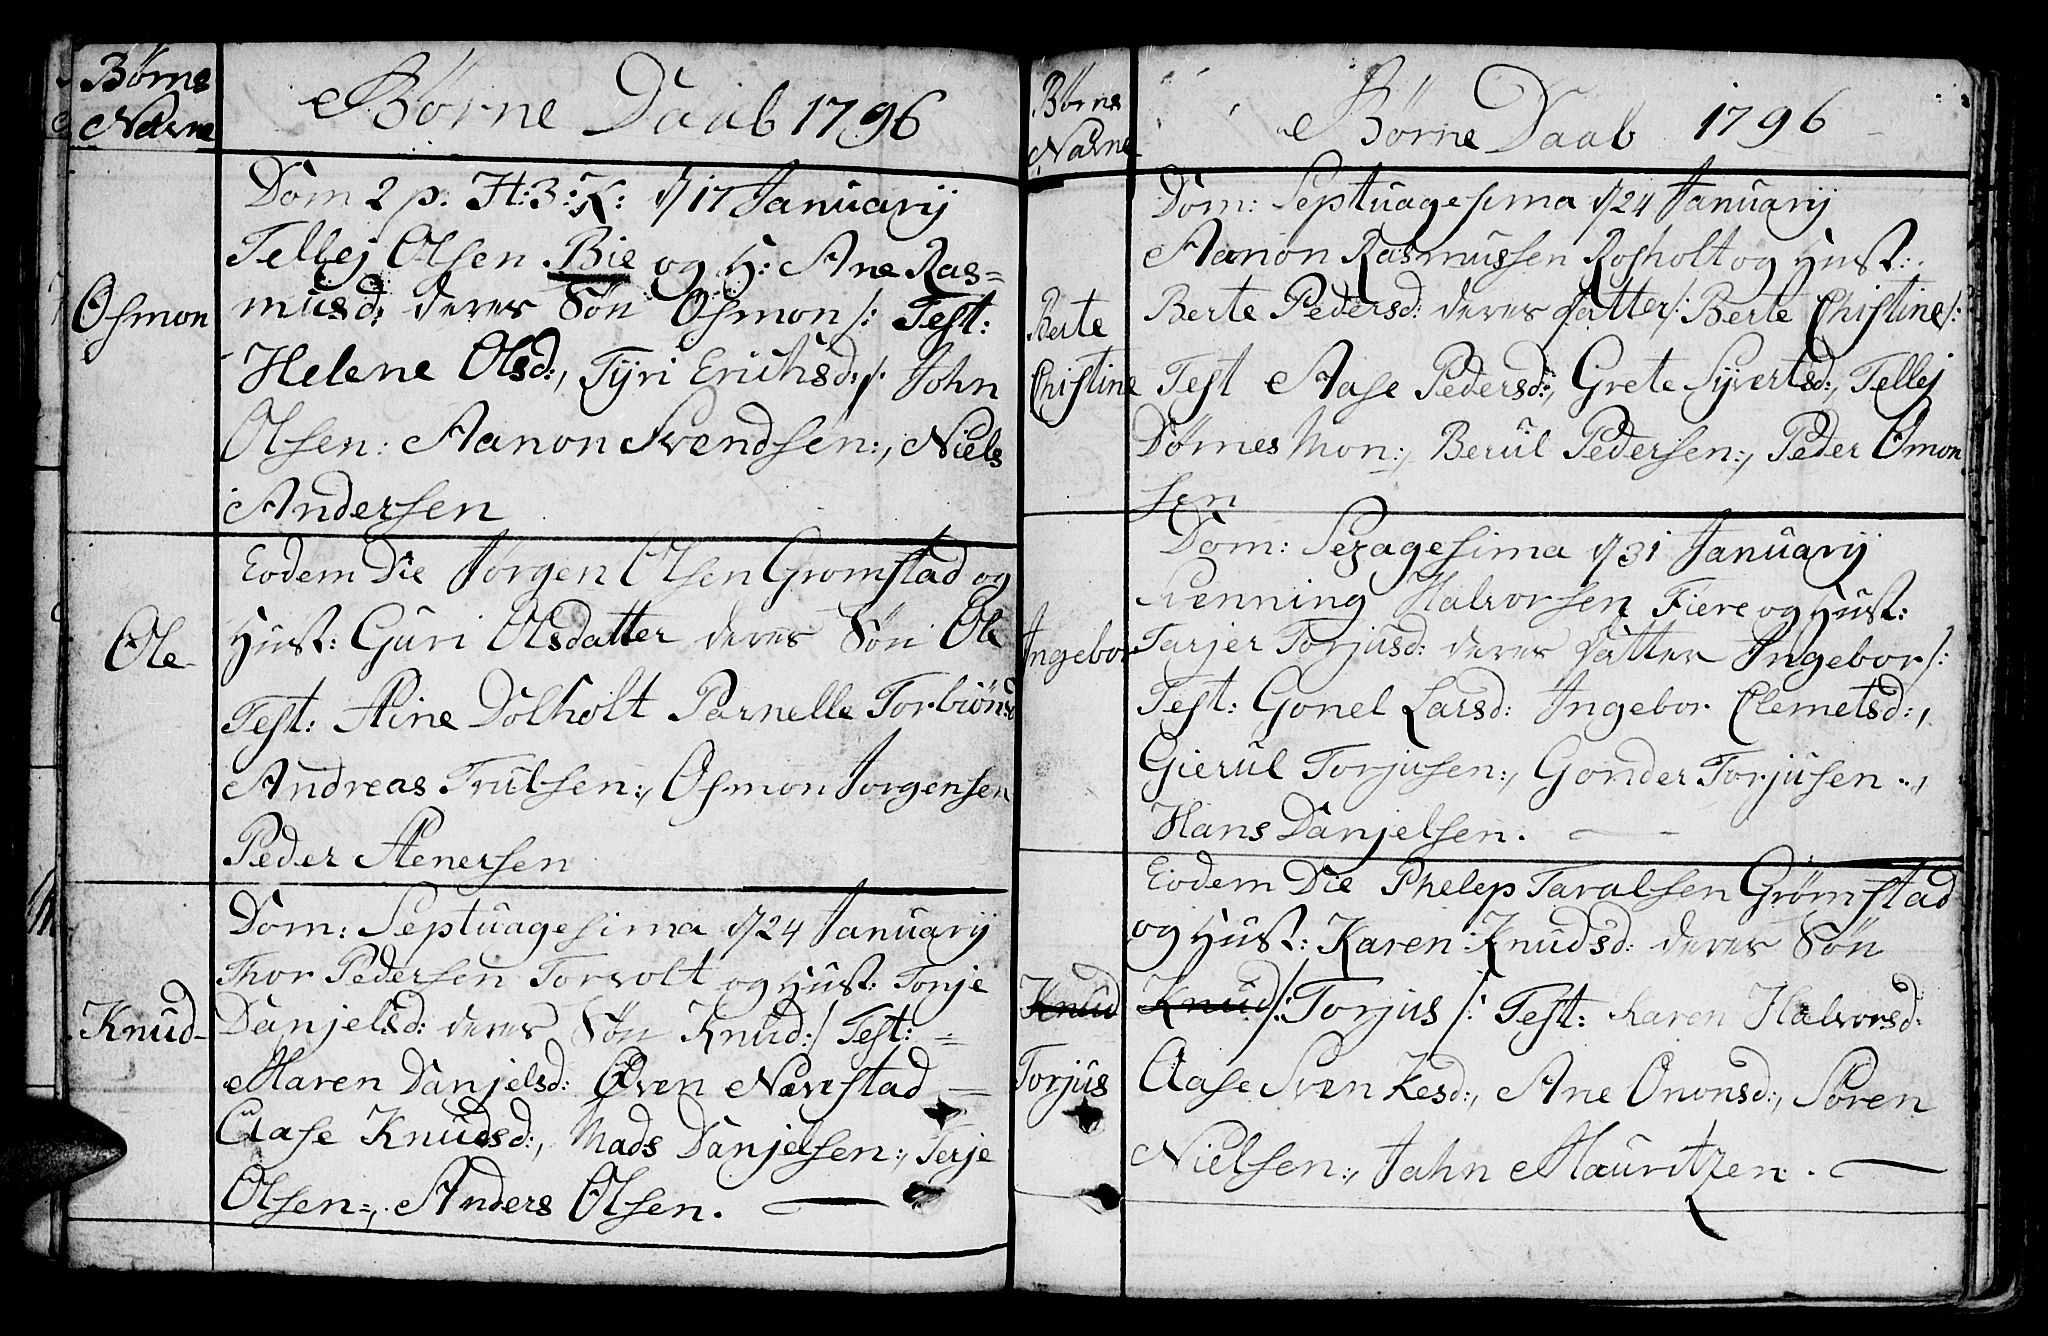 Børns
Navne
Børne Daab 1796
Osmon
Dom 2 p. H:3:K: d/17 Januarij
Tellej Olsen Bie og H: Ane Ras=
musd: deres Søn Osmon /: Test:
Helene Olsd:, Tyri Erichsd:, /: John
Olsen: Aanon Svendsen:, Niels
Andersen
Ole
Eodem Die Jørgen Olsen Gromstad og
Hust: Guri Olsdatter deres Søn Ole
Test: Aine Dolholt Parnelle Torbiønsd
Andreas Trulsen:, Osmon Jorgensen
Peder Aenersen
Knud
Dom: Septuagesima d/24 Januarij
Thor Pedersen Torvolt og Hust: Tonje
Danjelsd: deres Søn Knud:/ Test: =
Maren Danjelsd: Øven Nævestad
Aase Knudsd:, Mads Danjelsen:, Terje
Olsen=, Anders Olsen.
Børns
Navne
Børne Daab 1796
Berte
Christine
Dom: Septuagesima d/24 Januarij
Aanon Rasmussen Rosholt og Hust:
Berte Pedersd: deres Datter /: Berte Christine /:
Test Aase Pedersd:, Grete Syvertsd:, Tellej
Dørnes Mon:, Berul Pedersen:, Peder Omon
sen
Ingebor
Dom: Sexagesima d/31 Januarij
Svenning Halvorsen Fiere og Hust:
Tarjer Torjusd: deres Datter Ingebor /:
Test: Gonel Larsd: Ingebor Clemetsd:,
Gierul Torjusen:, Gonder Torjusen:,
Hans Danjelsen.
Knud
Torjus
Eodem Die Phelep Taralsen Grømstad
og Hust: Karen Knudsd: deres Søn
Knud /: Torjus /: Test: Karen Halvorsd:
Aase Svenkesd:, Ane Ononsd:, Søren
Nielsen:, Jahn Mauritzen.